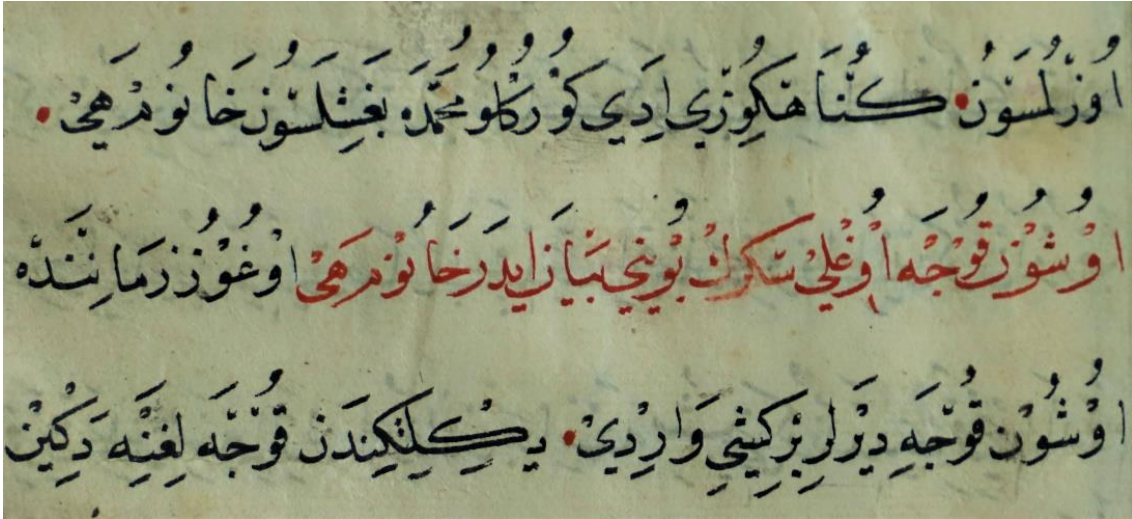 اُوزُلْمَسُوْنُ • كُنَاهَكُوزِي اَدِي كُوْرُكْلُو مُحَمَّدَه بَغِشْلَسُوْن خَانُومْ هَيْ •
اُوْشُوْن قُوْجَه اُوْغْلِيْ سَكْرَكْ بُوْيِنِيْ بَيَان اِيدَرْ خَانُوْمْ هَيْ اُوْغُوْز زَمَانِنْدَه
اُوْشُوْن قُوْجَه دِيْرْلَر بِرْ كِيْشِي وَارِدِيْ • يِكِتْلِكِنْدَن قُوْجَه لِغِنَه دَكِيْنْ